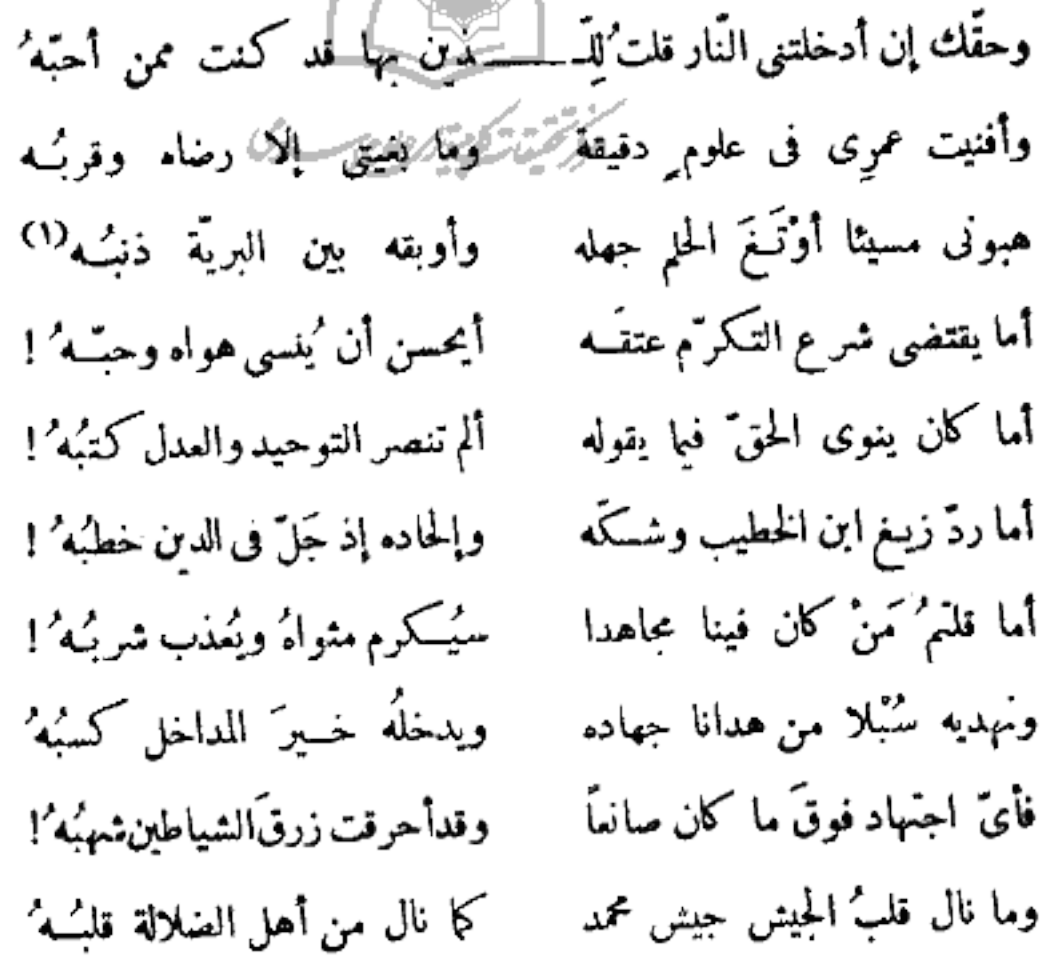 وحقّك إن أدخلتنى النّار قلتُ للّـ ـذين بها قد كنت ممن أحبّهُ
وأفنيت عمرِى فى علومٍ دقيقة وما بغيتى إلا رضاه وقربُـه
هبونى مسيئا أوْتَـغَ الحلم جهله وأوبقه بين البريّة ذنبُـه(١)
أما يقتضى شرع التكرّم عتقَـه أيحسن أن يُنسى هواه وحبّـهُ !
أما كان ينوى الحقّ فيما يقوله ألم تنصر التوحيد والعدل كتبُهُ !
أما ردّ زيغ ابن الخطيب وشكَّه وإلحاده إذ جَلّ فى الدين خطبُهُ !
أما قلتمُ مَنْ كان فينا مجاهدا سيُـكرم مثواهُ ويُعذب شربُـهُ !
ونهديه سُبْلا من هدانا جهاده ويدخلُه خـيرَ المداخل كسبُهُ
فأىّ اجتهاد فوقَ ما كان صانعاً وقد أحرقت زرقَ الشياطين شهبُهُ !
وما نال قلبُ الجيش جيش محمد كما نال من أهل الضلالة قلبُـهُ